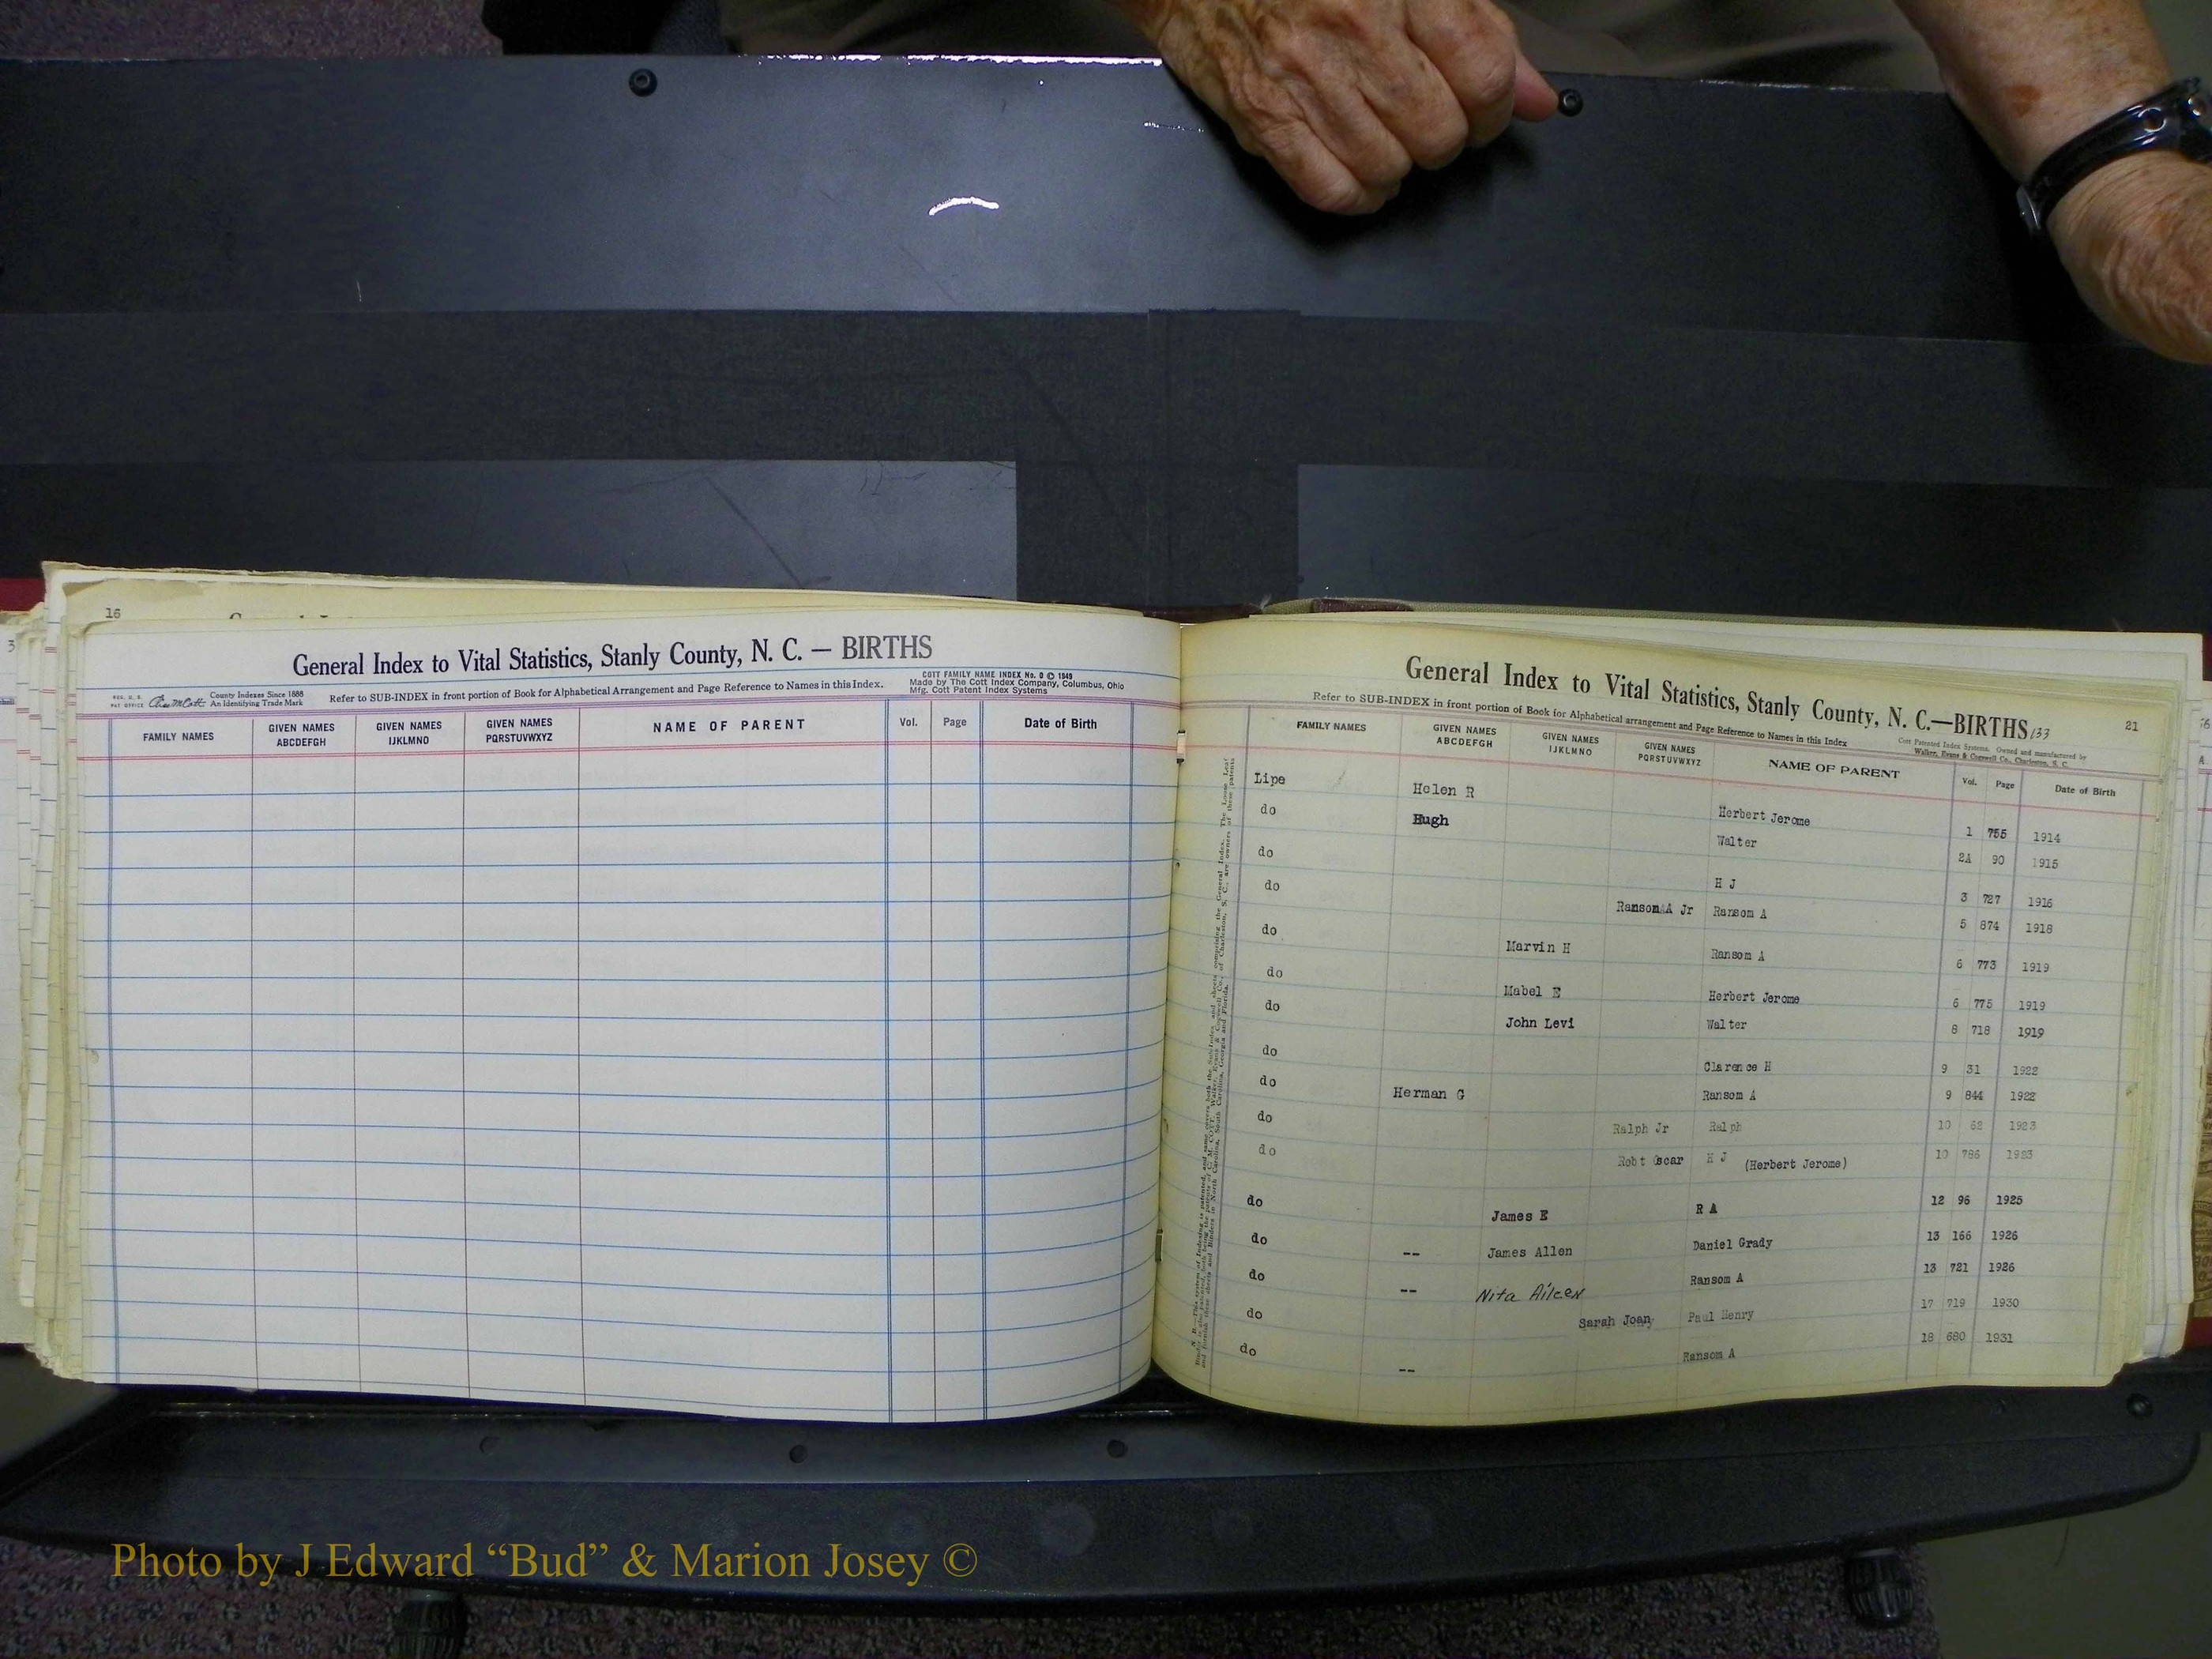 16
3
General Index to Vital Statistics, Stanly County, N. C. — BIRTHS
REG. U. S. PAT OFFICE
County Indexes Since 1888
An Identifying Trade Mark
Refer to SUB-INDEX in front portion of Book for Alphabetical Arrangement and Page Reference to Names in this Index.
COTT FAMILY NAME INDEX No. 0 © 1949
Made by The Cott Index Company, Columbus, Ohio
Mfg. Cott Patent Index Systems
FAMILY NAMES GIVEN NAMES ABCDEFGH GIVEN NAMES IJKLMNO GIVEN NAMES PQRSTUVWXYZ NAME OF PARENT Vol. Page Date of Birth
General Index to Vital Statistics, Stanly County, N. C.—BIRTHS 133 21
Refer to SUB-INDEX in front portion of Book for Alphabetical arrangement and Page Reference to Names in this Index
Cott Patented Index Systems. Owned and manufactured by
Walker, Evans & Cogswell Co., Charleston, S. C.
FAMILY NAMES GIVEN NAMES ABCDEFGH GIVEN NAMES IJKLMNO GIVEN NAMES PQRSTUVWXYZ NAME OF PARENT Vol. Page Date of Birth
Lipe Helen R Herbert Jerome 1 755 1914
do Hugh Walter 2A 90 1915
do H J 3 727 1916
do Ransom A Jr Ransom A 5 874 1918
do Marvin H Ransom A 6 773 1919
do Mabel E Herbert Jerome 6 775 1919
do John Levi Walter 8 718 1919
do Clarence H 9 31 1922
do Herman G Ransom A 9 844 1922
do Ralph Jr Ralph 10 62 1923
do Robt Oscar H J (Herbert Jerome) 10 786 1923
do James E R A 12 96 1925
do -- James Allen Daniel Grady 13 166 1926
do -- Nita Aileen Ransom A 13 721 1926
do Sarah Joan Paul Henry 17 719 1930
do -- Ransom A 18 680 1931
Photo by J Edward “Bud” & Marion Josey ©